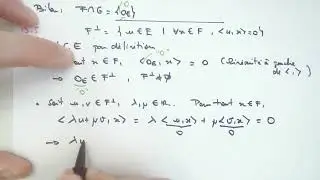 Bilan : F∩G = {0_E}
F^⊥ = { u ∈ E | ∀x ∈ F, <u,x> = 0 }
⊂ E par définition
x ∈ F, <0_E, x> = 0 (linéarité à gauche de <,>)
→ 0_E ∈ F^⊥, F^⊥ ≠ ∅
• Soit u, v ∈ F^⊥, λ, μ ∈ ℝ. Pour tout x ∈ F,
<λu + μv, x> = λ <u, x> + μ <v, x> = 0
0 0
→ λu